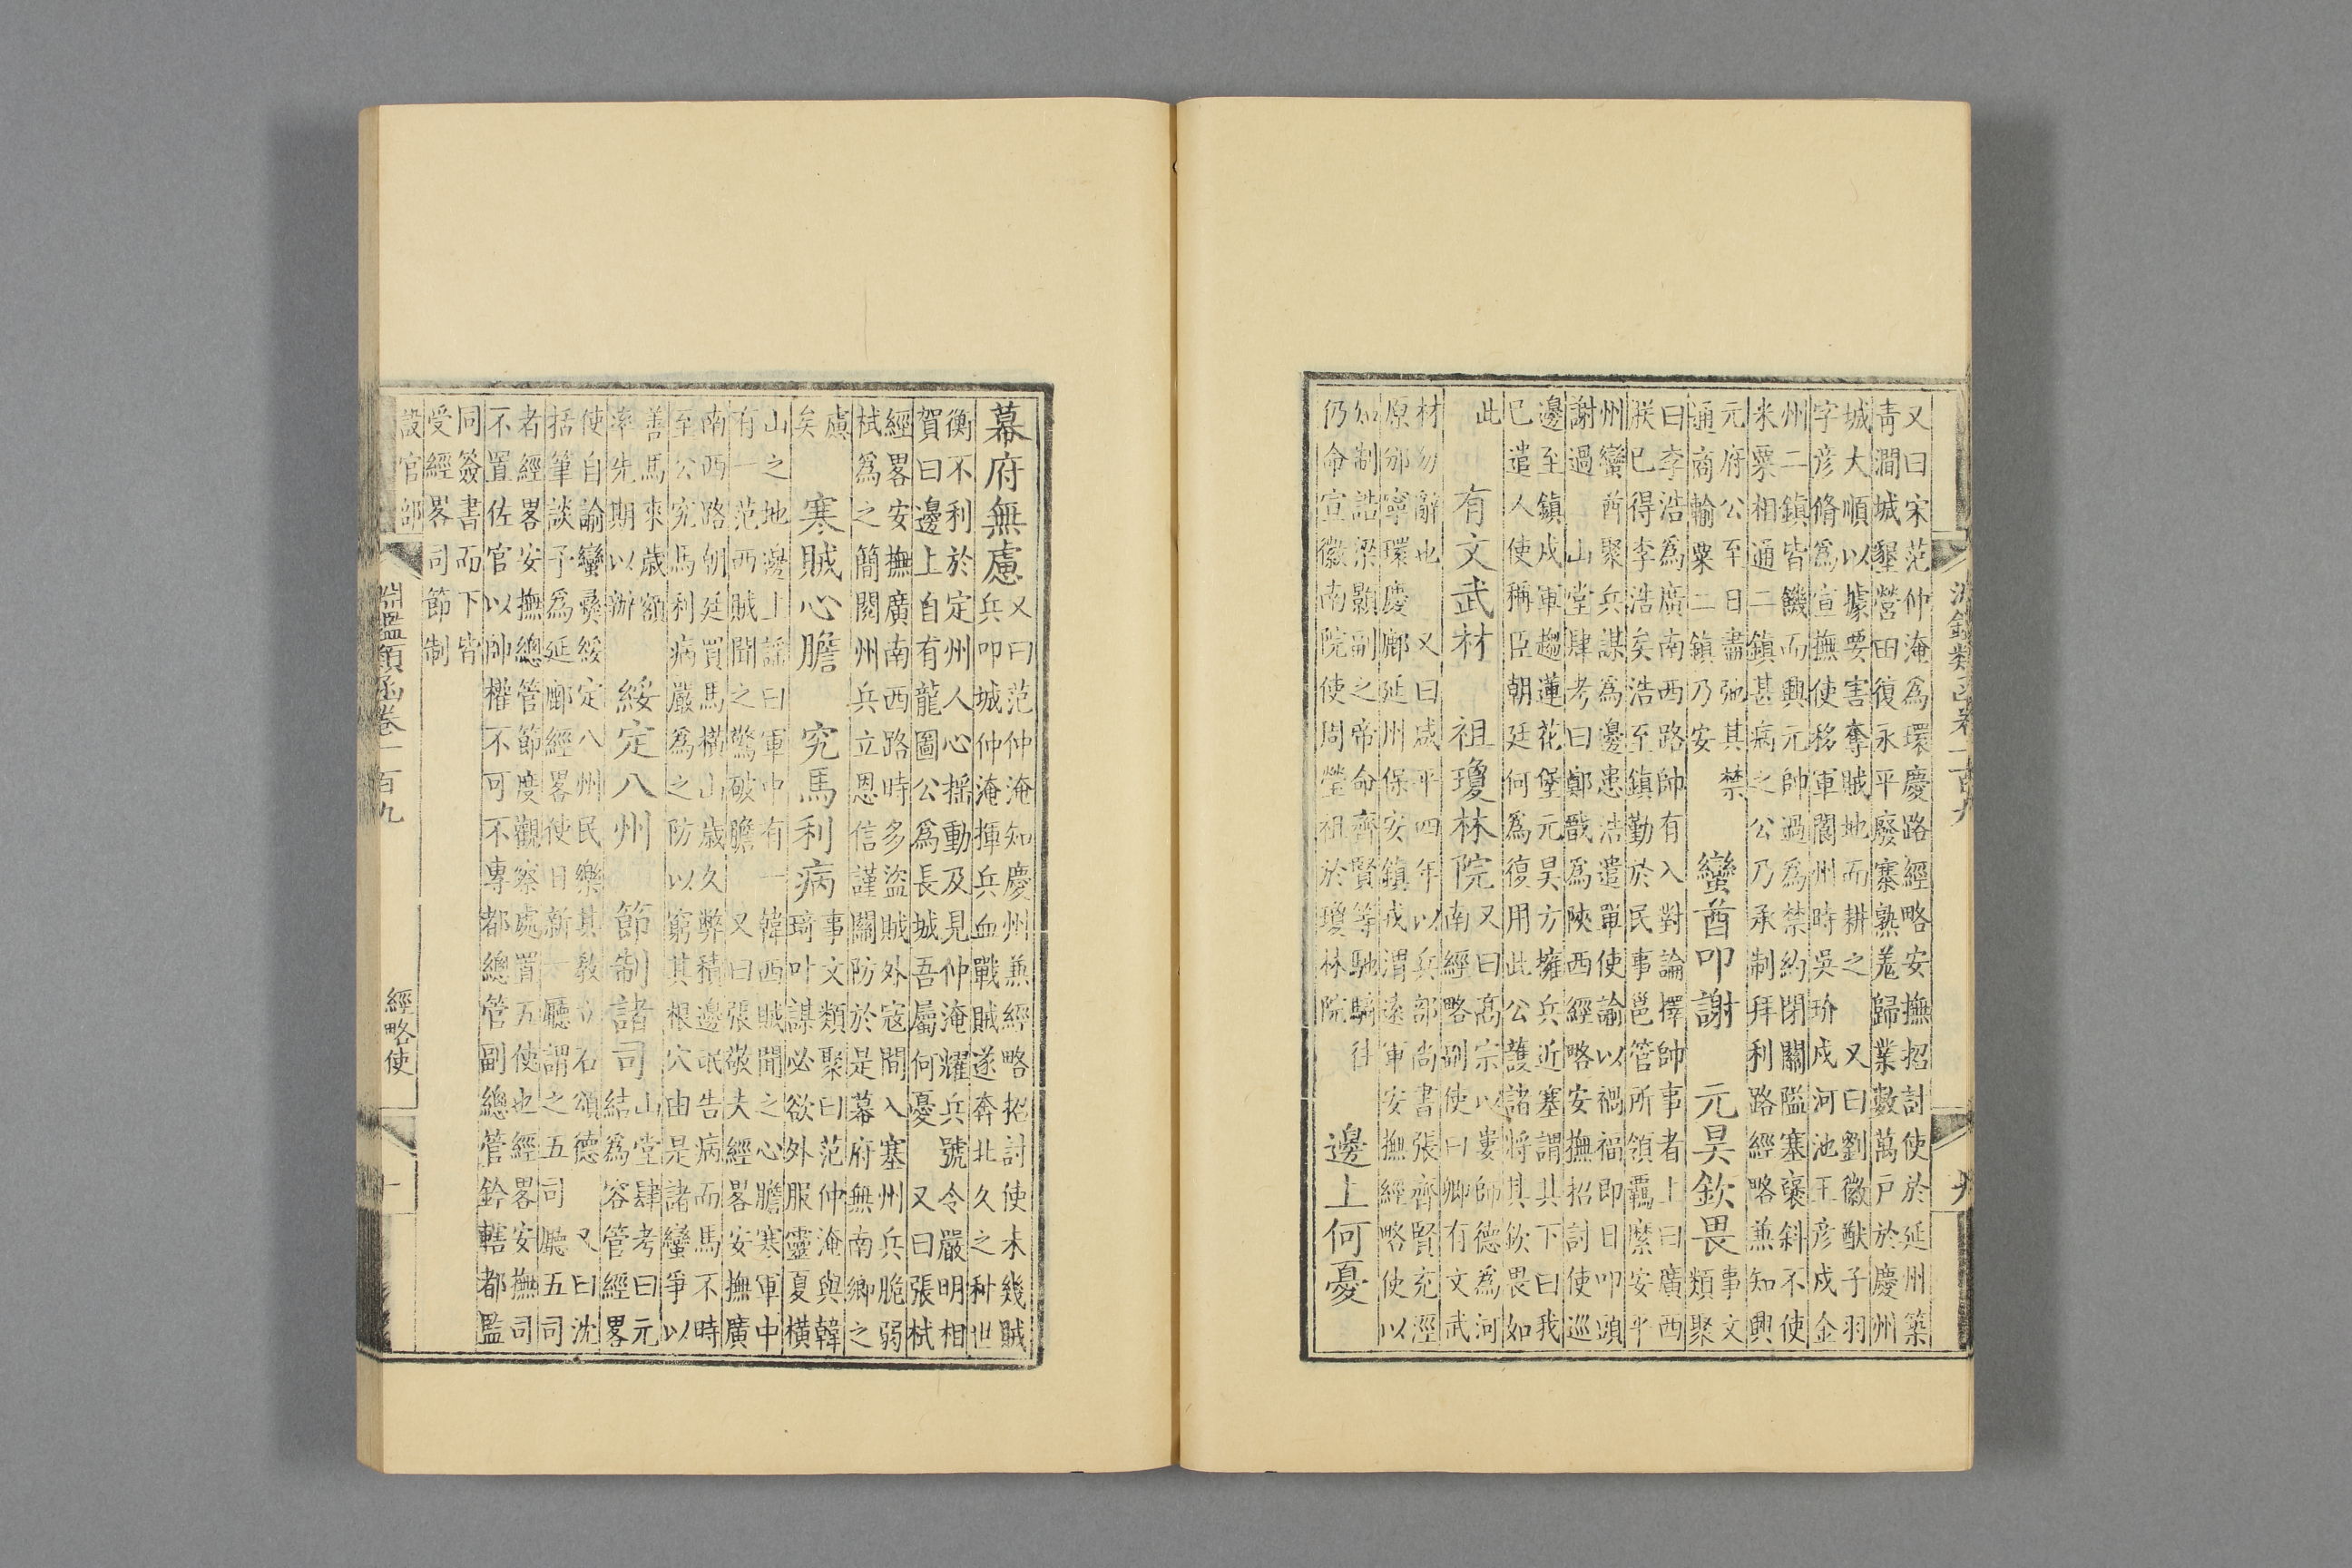 淵鑑類函卷一百九 九
又曰宋范仲淹為環慶路經略安撫招討使於延州築
青澗城墾營田復永平廢寨熟羗歸業數萬戸於慶州
城大順以據要害奪賊地而耕之 又曰劉徽猷子羽
字彦脩為宣撫使移軍閬州時吳玠戍河池王彦戍金
州二鎮皆饑而興元帥過為禁約閉關隘塞褒斜不使
米粟相通二鎮甚病之公乃承制拜利路經略兼知興
元府公至日盡弛其禁
通商輸粟二鎮乃安
蠻酋叩謝 元昊欽畏
事文
類聚
曰李浩為廣南西路帥有入對論擇帥事者上曰廣西
朕已得李浩矣浩至鎮勤於民事邕管所領羈縻安平
州蠻酋聚兵謀為邊患浩遣單使諭以禍福即日叩頭
謝過 山堂肆考曰鄭戩為陜西經略安撫招討使巡
邊至鎮戎軍趨蓮花堡元昊方擁兵近塞謂其下曰我
已遣人使稱臣朝廷何為復用此公護諸將其欽畏如
此
有文武材 祖瓊林院
又曰髙宗以婁師德為河
南經略副使曰卿有文武
材勿辭也 又曰咸平四年以兵部尚書張齊賢充涇
原邠寧環慶鄜延州保安鎮戎渭遠軍安撫經略使以
知制誥梁顥副之帝命齊賢等馳騎往
仍命宣徽南院使周瑩祖於瓊林院
邊上何憂
幕府無慮
又曰范仲淹知慶州兼經略招討使未幾賊
兵叩城仲淹揮兵血戰賊遂奔北久之种世
衡不利於定州人心揺動及見仲淹耀兵號令嚴明相
賀曰邊上自有龍圖公為長城吾屬何憂 又曰張栻
經畧安撫廣南西路時多盜賊外寇間入塞州兵脆弱
栻為之簡閱州兵立恩信謹關防於是幕府無南鄉之
慮
矣
寒賊心膽 究馬利病
事文類聚曰范仲淹與韓
琦叶謀必欲外服靈夏橫
山之地邊上謡曰軍中有一韓西賊聞之心膽寒軍中
有一范西賊聞之驚破膽 又曰張敬夫經畧安撫廣
南西路朝廷買馬横山歲久弊積邊氓告病而馬不時
至公究馬利病嚴為之防以窮其根穴由是諸蠻爭以
善馬來歲額
率先期以辦
綏定八州 節制諸司
山堂肆考曰元
結為容管經畧
使自諭蠻彞綏定八州民樂其教立石頌德 又曰沈
括筆談予為延鄜經畧使日新一廳謂之五司廳五司
者經畧安撫總管節度觀察處置五使也經畧安撫司
不置佐官以帥權不可不專都總管副總管鈐轄都監
同簽書而下皆
受經畧司節制
設官部 淵鑑類函卷一百九 經略使 十